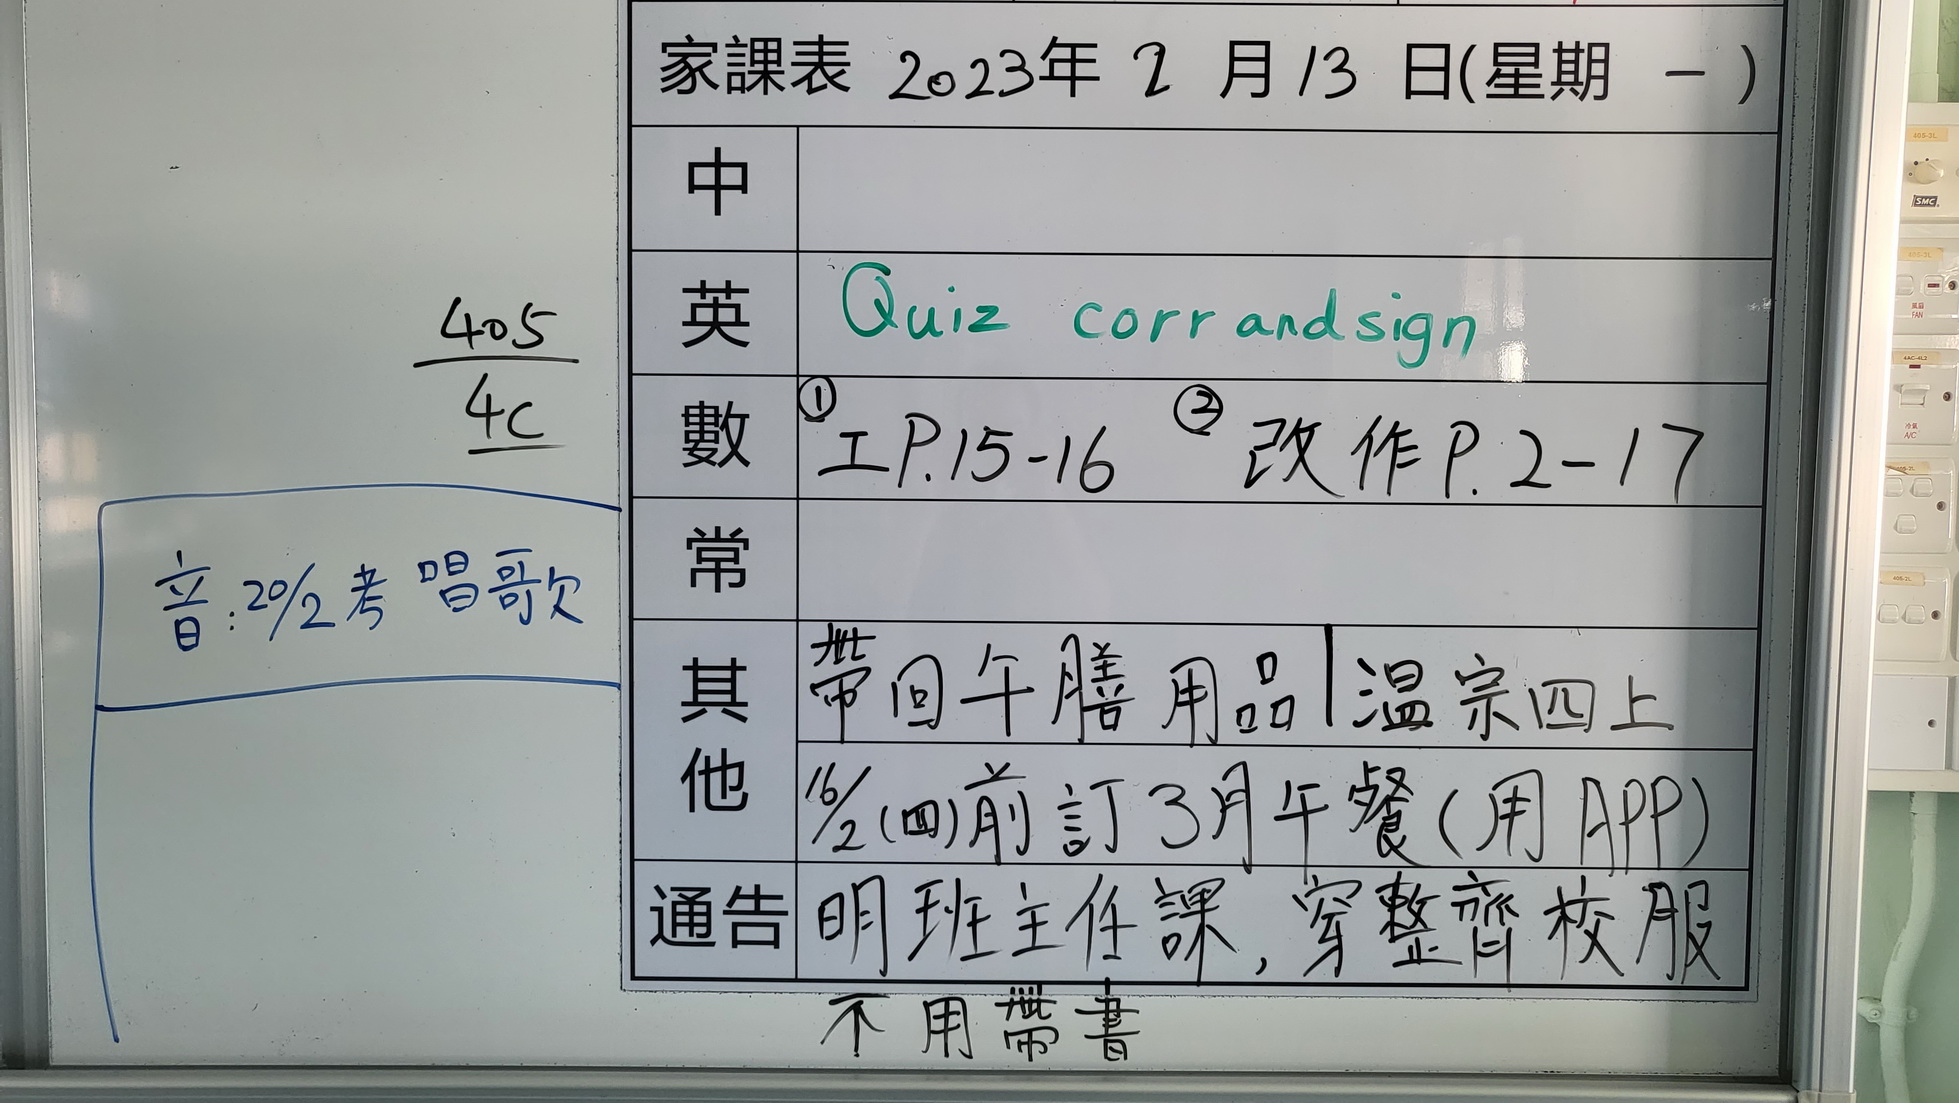 家課表 2023年 2 月 13 日(星期 一 )
中
英 Quiz corr and sign
數 ①工P.15-16 ②改作P.2-17
常
其他 帶回午膳用品|溫宗四上
16/2(四)前訂3月午餐(用APP)
通告 明班主任課,穿整齊校服
不用帶書
405
4C
音:20/2考唱歌
405-3L
SMC
風扇
FAN
4AC-4L2
冷氣
A/C
405-2L